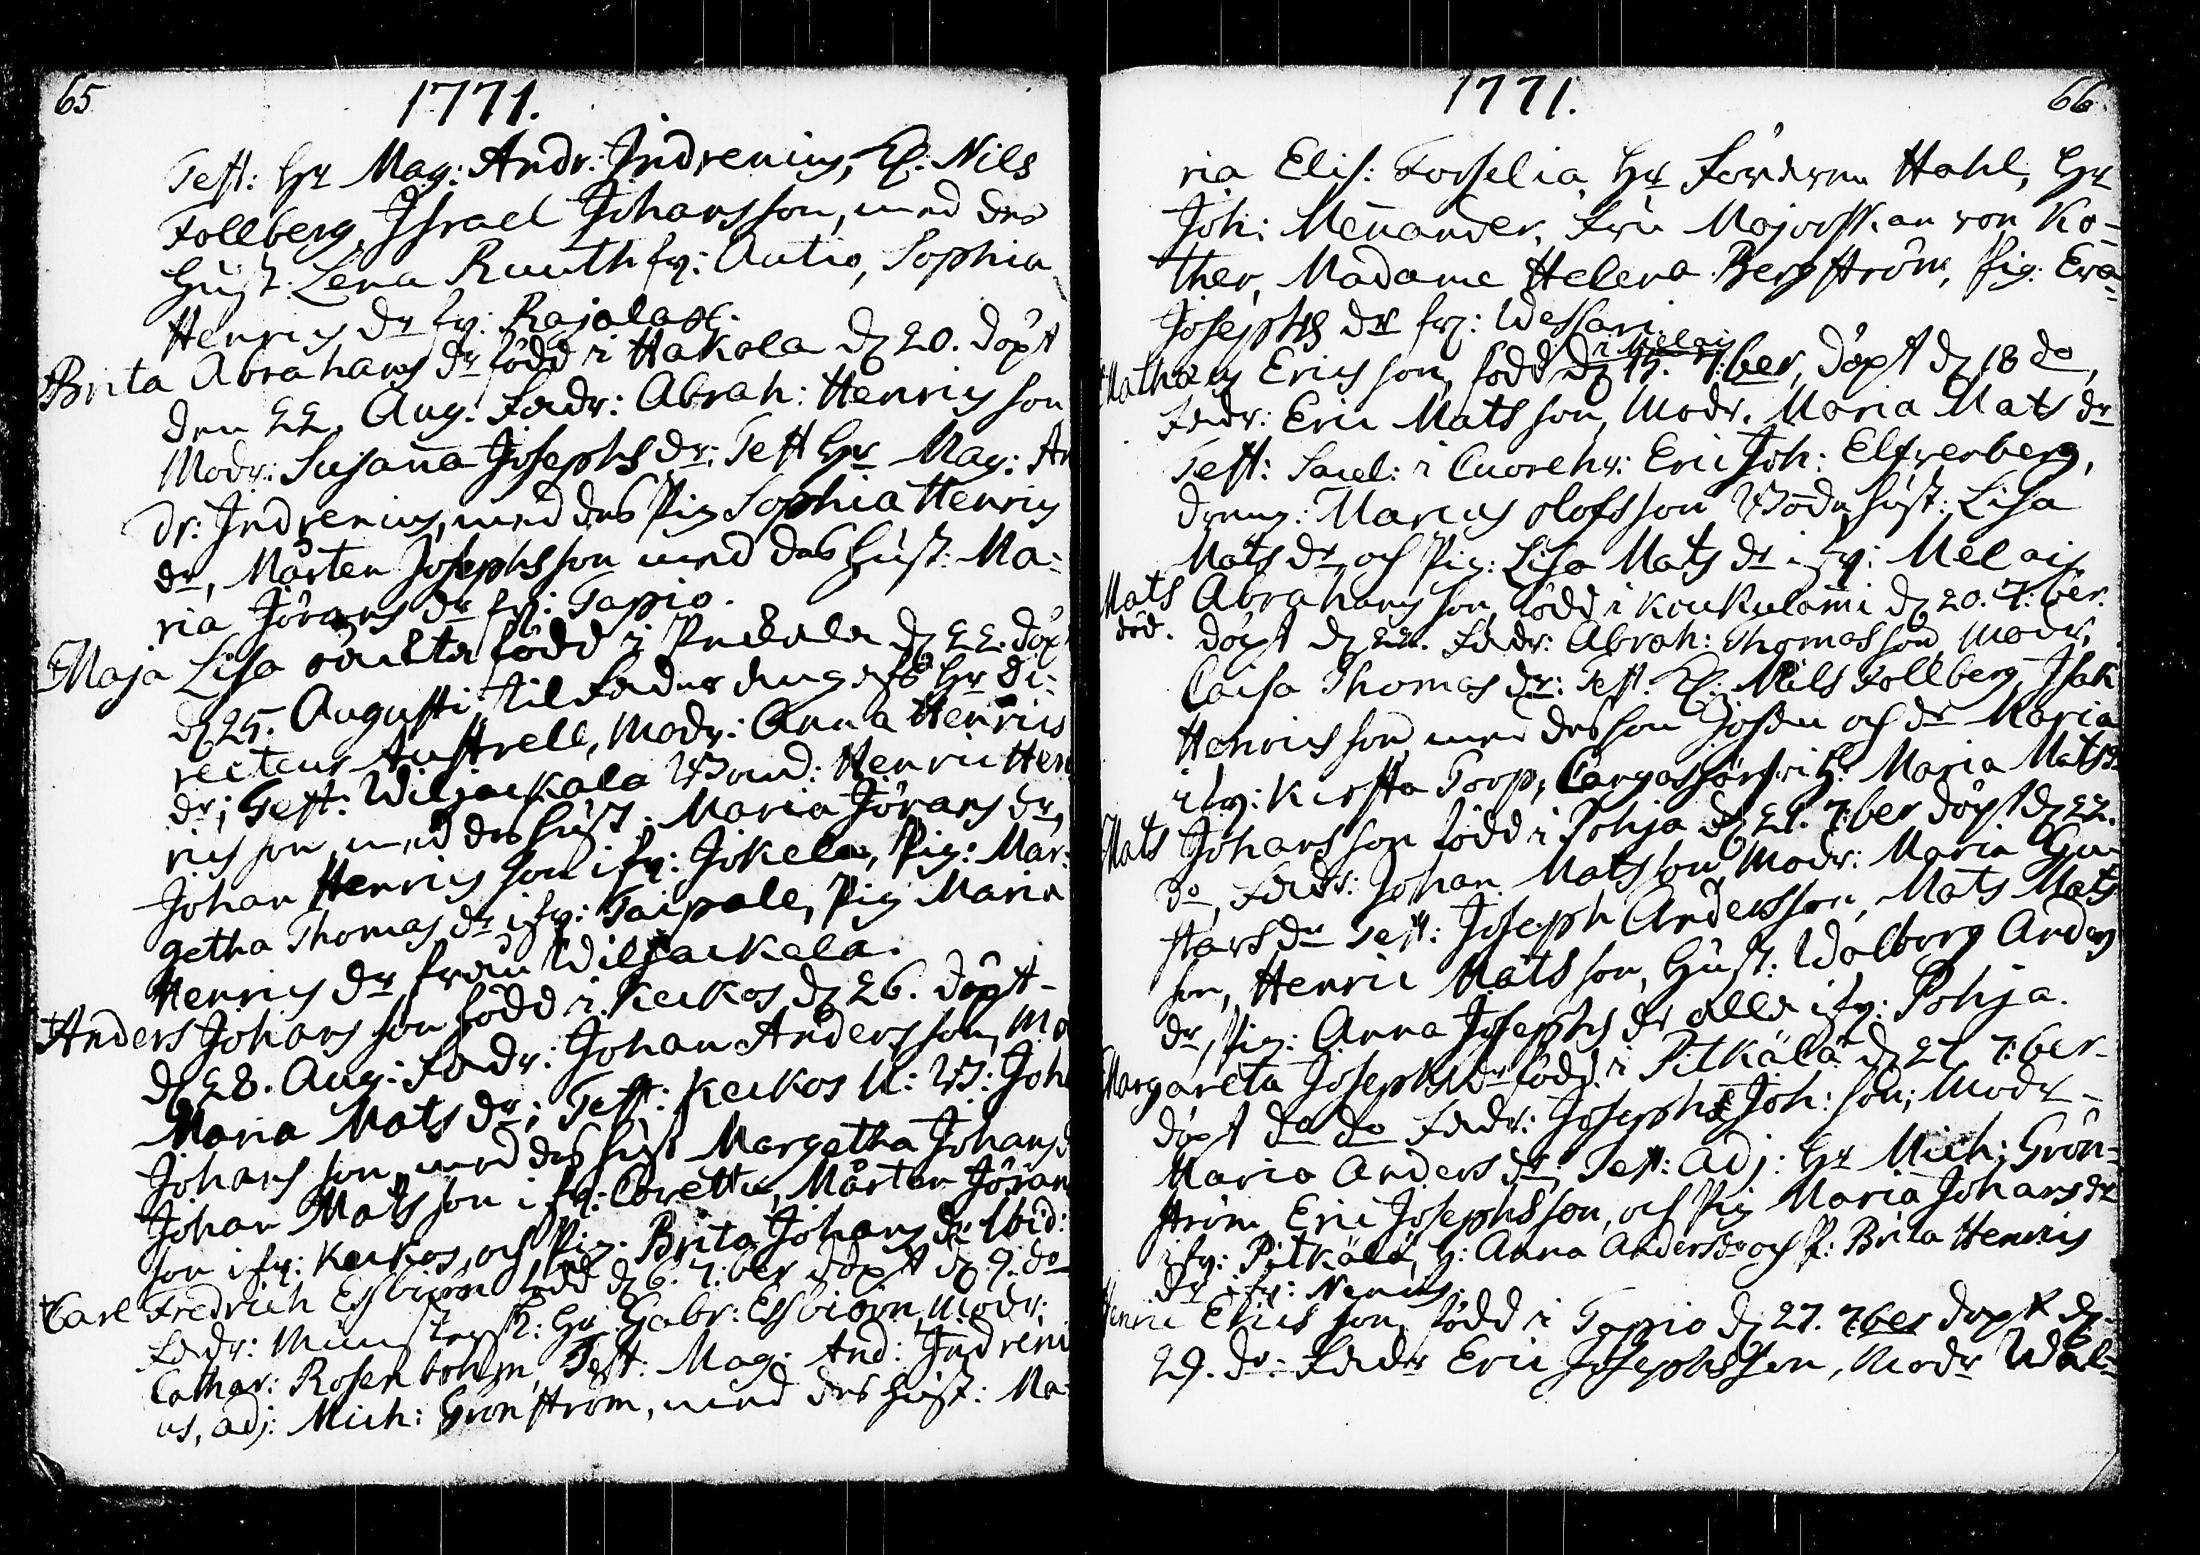 65
1771.
Test: Hr Mag: Andr: Indrenius, Kl: Nils
Follberg, Israel Johansson, med des
Hust: Lena Ruuth fr: Autio, Sophia
Henrics dr fr: Rajalax.
Brita Abrahams dr född i Hakola d 20. döpt
den 22. Aug. Fadr: Abrah: Henrics son
Modr: Susana Josephs dr: Test Hr Mag: An
dr: Indrenius, med des Pig Sophia Henrics
dr, Mårten Josephsson med des Hust: Ma=
ria Jörans dr fr: Tapio.
Maja Lisa oäckta född i d 22. döpt
d 25. Augusti: til Fader Hr Di=
recteur Austrell, Modr: Anna Henrics
dr; Test: Wiljackala Henric Hen
rics son med des Hust: Maria Jörans dr,
Johan Henrics son i fr: Jokela, Pig: Mar:
getha Thomas dr i fr: Taipale, Pig Maria
Henrics dr från Wiljackala.
Anders Johans son född i Keckos d 26. döpt
d 28. Aug: Fadr: Johan Anders son, Mo
Maria Mats dr; Test: Keckos Joh
Johans son med des Hust Margetha Johans d
Johan Mats son i fr: Coretti, Mårten Jöran
son i fr: Keckos, och Pig. Brita Johans dr ibid:
Carl Fredrich Essbiörn född d 6. 7:ber döpt d. 9. do
Fadr: Hr Gabr: Essbiörn, Modr:
Cathar: Rosenbohm, Test: Mag: And: Indreni
us, adj: Mich: Grönström, med des Hust: Ma=
1771.
66.
ria Elis: Forselia, Hr Hahl, Hr
Joh: Menander, Fru Majorskan von Ko=
ther, Madame Helena Bergström, Pig: Eva
Josephs dr fr: Wessari.
i Melais
Mathias Erics son, född d 15. 7:ber, döpt d 18 do,
Fadr: Eric Matsson, Modr. Maria Mats dr
Test: i Cuorehr: Eric Joh: Elfverberg,
dreng: Marcus Olofsson Bonde hust: Lisa
Mats dr, och Pig: Lisa Mats dr i fr: Melais
Mats Abrahams son född i Kuckulami d 20. 7:ber.
död. döpt d 22. Fadr: Abrah: Thomasson, Modr,
Caisa Thomas dr: Test. Kl: Nils Follberg, Isak
Henricsson med des son och dr Maria
i fr: Kirsta Torp, H: Maria Mats dr
Mats Johans son född i Pohja d 21. 7:ber döpt d 22.
do, Fadr: Johan Matsson Modr: Maria Gu
stafs dr Test: Joseph Andersson, Mats Mats
son, Henric Mats son, Hust: Walborg Anders
dr, Pig: Anna Josephs dr alla i fr: Pohja.
Margareta Josephs dr född i Pitkälä d 27. 7:ber.
döpt do do Fadr: Joseph Joh: son; Modr
Maria Anders dr; Test: Adj: Hr Mich: Grön=
ström, Eric Josephsson, och Pig Maria Johans dr
i fr: Pitkälä, H: Anna Anders dr och P: Brita Henrics
dr i fr:
Henric Erics son, född i Tapio d 27. 7:ber döpt d
29. do. Fadr Eric Josephsson, Modr Wal=